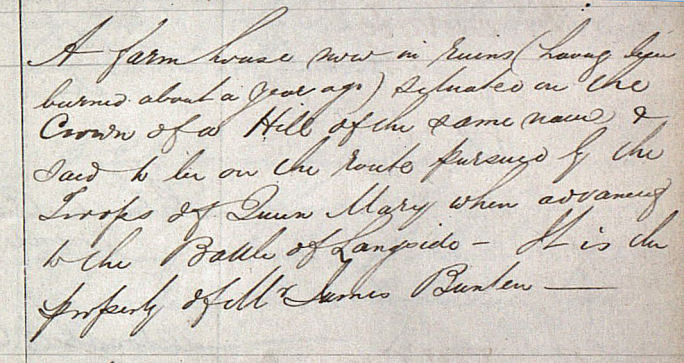 A farm house now in ruins (having been
burned about a year ago) situated on the
Crown of a Hill of the same name &
said to be on the route pursued by the
Troops of Queen Mary when advancing
to the Battle of Langside - It is the
property of Mr James Bunten —